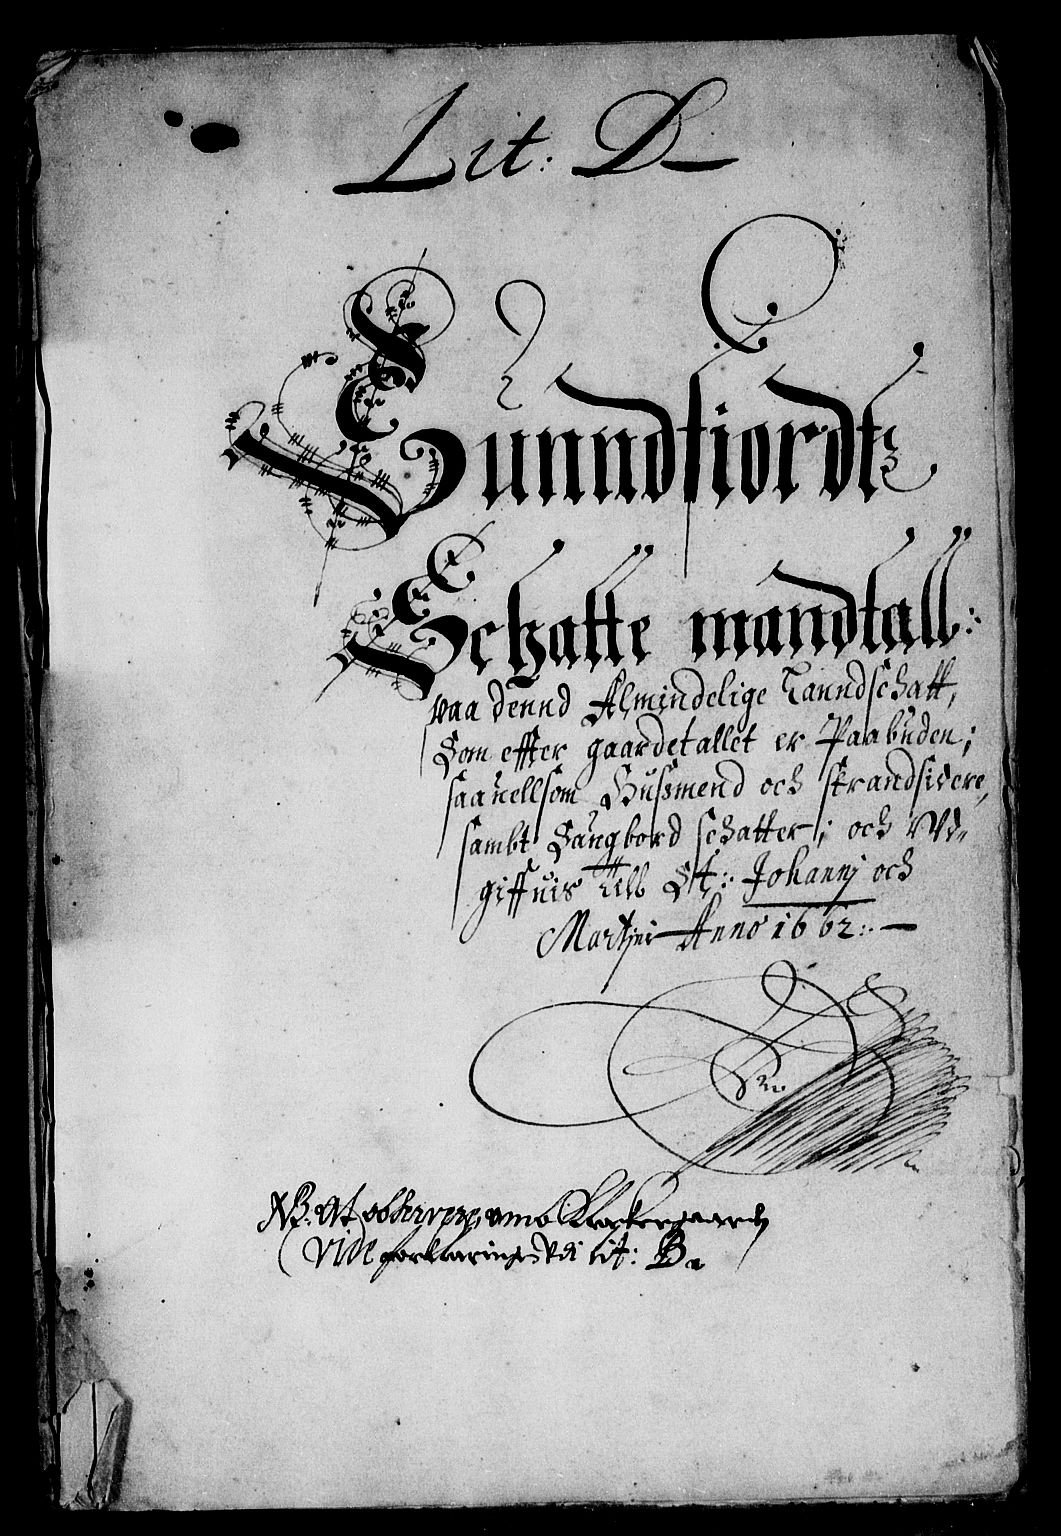 Lit: D
Sunndfiordtz
Schatte mandtall:
paa dennd Almindelige Lanndschatt,
Som effter gaardetallet er Paabuden;
saauellsom Husmend och strandsidere,
sambt Saugbord schatter; och Wd-
giffuis till St: Johannj och
Martjni Anno 1662:
NB: At obseruere, om Klockergaarde
Vide forklaring wdi Lit: B.